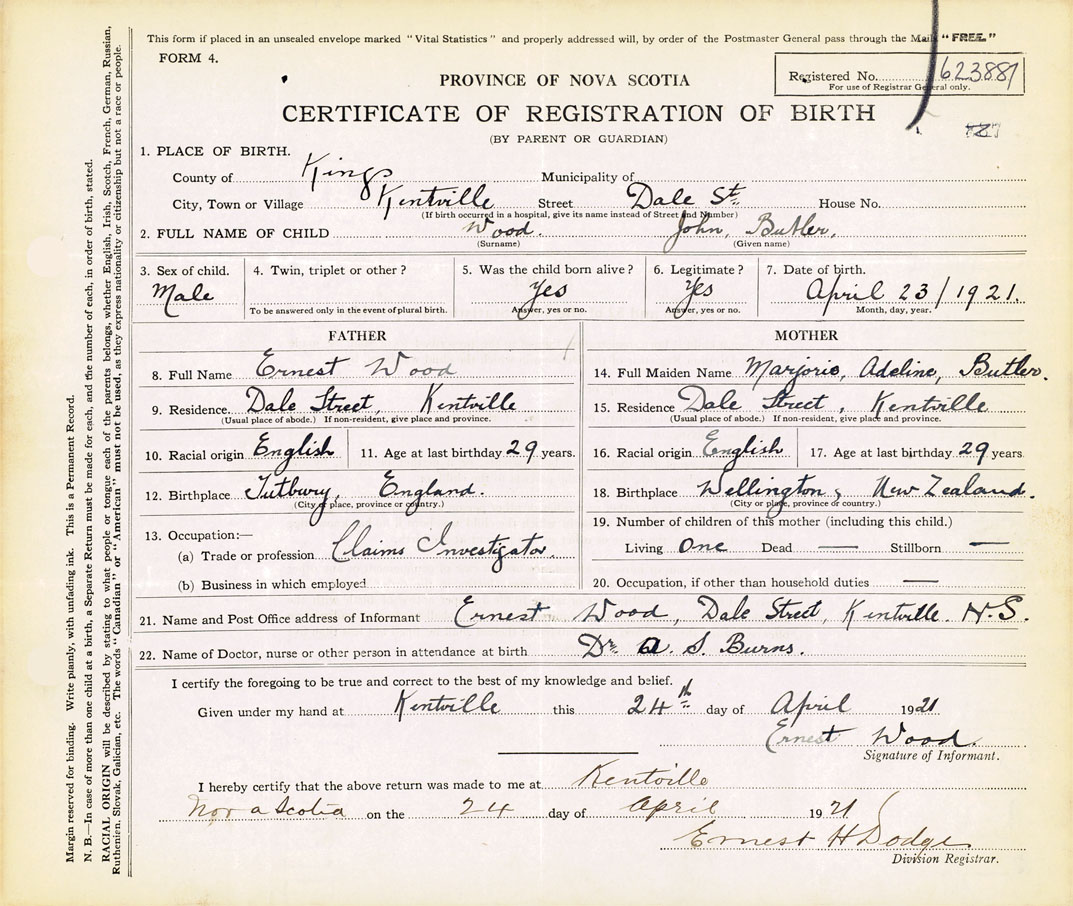 This form if placed in an unsealed envelope marked "Vital Statistics" and properly addressed will, by order of the Postmaster General pass through the Mail "FREE."
FORM 4.
Registered No. 623881
For use of Registrar General only.
PROVINCE OF NOVA SCOTIA
CERTIFICATE OF REGISTRATION OF BIRTH
(BY PARENT OR GUARDIAN)
1. PLACE OF BIRTH.
County of Kings Municipality of
City, Town or Village Kentville Street Dale St. House No.
(If birth occurred in a hospital, give its name instead of Street and Number)
2. FULL NAME OF CHILD Wood. John, Butler,
(Surname) (Given name)
3. Sex of child. 4. Twin, triplet or other? 5. Was the child born alive? 6. Legitimate? 7. Date of birth.
Male Yes Yes April 23/1921.
To be answered only in the event of plural birth. Answer, yes or no. Answer, yes or no. Month, day, year.
FATHER
8. Full Name Ernest Wood
9. Residence. Dale Street, Kentville
(Usual place of abode.) If non-resident, give place and province.
10. Racial origin English 11. Age at last birthday 29 years.
12. Birthplace Tutbury, England.
(City or place, province or country.)
13. Occupation:—
(a) Trade or profession Claims Investigator.
(b) Business in which employed
MOTHER
14. Full Maiden Name Marjorie, Adeline, Butler.
15. Residence Dale Street, Kentville
(Usual place of abode.) If non-resident, give place and province.
16. Racial origin English 17. Age at last birthday 29 years.
18. Birthplace Wellington, New Zealand.
(City or place, province or country.)
19. Number of children of this mother (including this child.)
Living One Dead — Stillborn —
20. Occupation, if other than household duties —
21. Name and Post Office address of Informant Ernest Wood, Dale Street, Kentville. N.S.
22. Name of Doctor, nurse or other person in attendance at birth Dr. A. S. Burns.
I certify the foregoing to be true and correct to the best of my knowledge and belief.
Given under my hand at Kentville this 24th day of April 1921
Ernest Wood.
Signature of Informant.
I hereby certify that the above return was made to me at Kentville
Nova Scotia on the 24 day of April 1921
Ernest H Dodge
Division Registrar.
Margin reserved for binding. Write plainly, with unfading ink. This is a Permanent Record.
N. B.—In case of more than one child at a birth, a Separate Return must be made for each, and the number of each, in order of birth, stated.
RACIAL ORIGIN will be described by stating to what people or tongue each of the parents belongs, whether English, Irish, Scotch, French, German, Russian,
Ruthenien, Slovak, Galician, etc. The words "Canadian" or "American" must not be used, as they express nationality or citizenship but not a race or people.